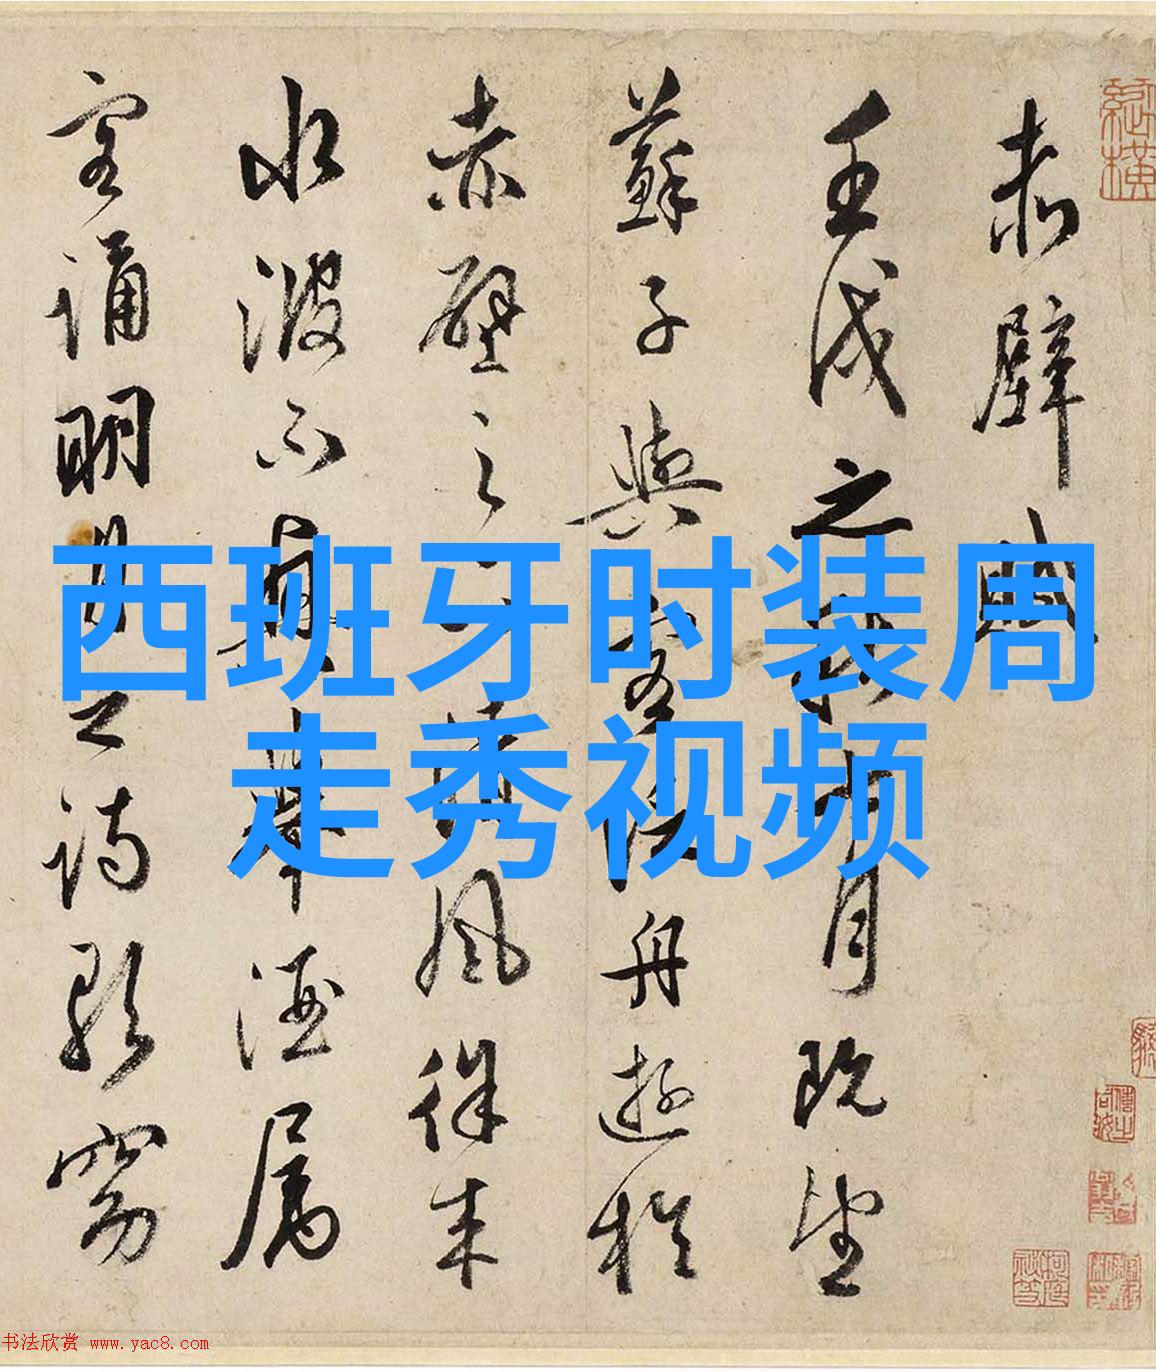 赤壁賦
壬戌之秋七月既望
蘇子與客泛舟遊於
赤壁之下清風徐來
水波不興舉酒屬
客誦明月之詩歌窈
西班牙时装周
走秀视频
书法欣赏 www.yac8.com